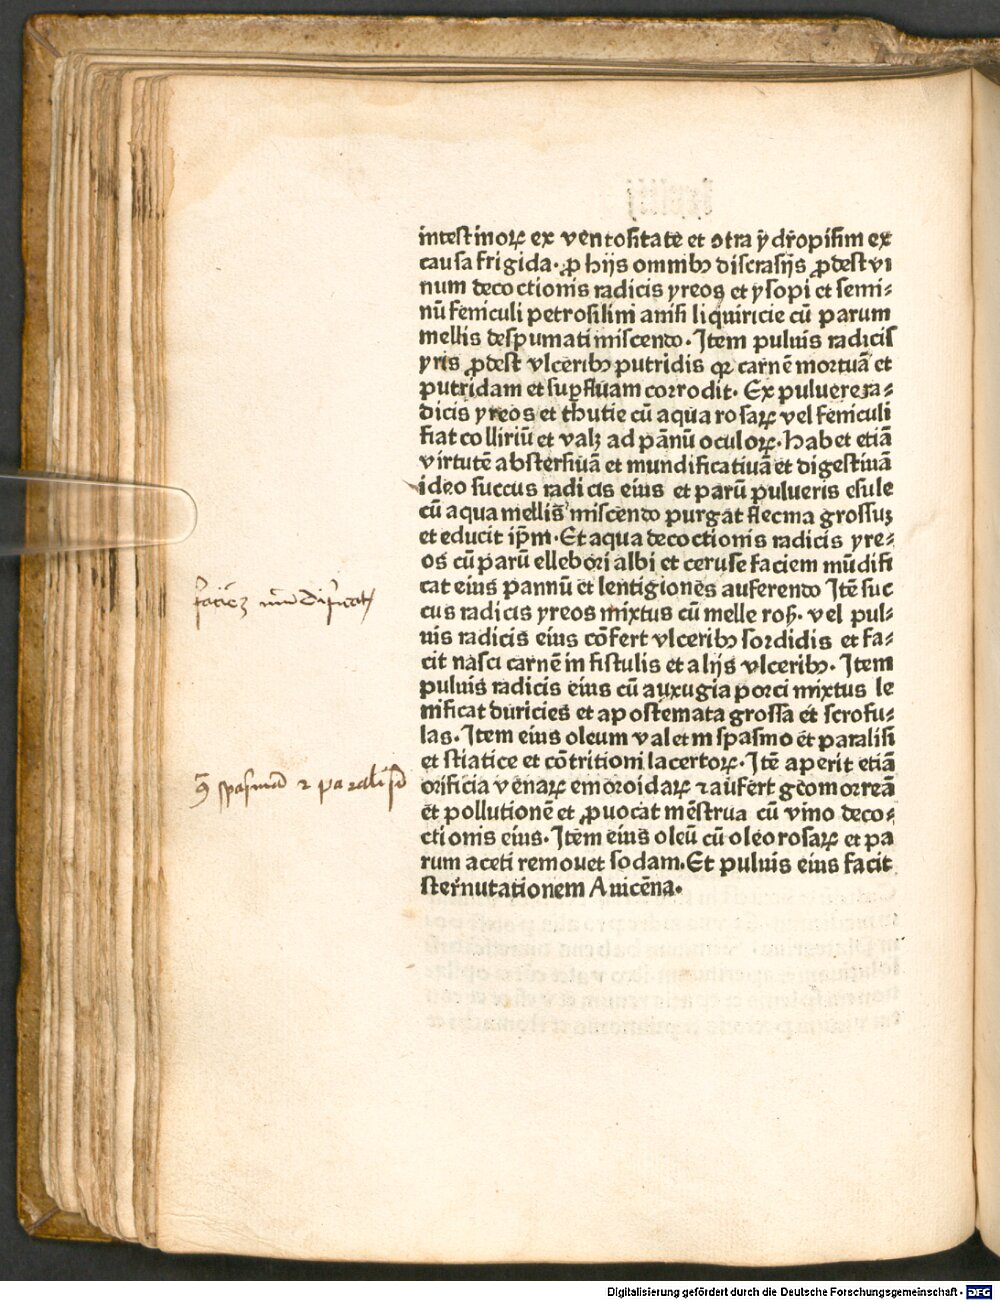 intestinoꝝ ex ventositate et ↄtra ẏdropisim ex
causa frigida. ꝓ hijs omnibꝫ discrasijs ꝓdest vi
num decoctionis radicis yreos et ysopi et semi⸗
nū feniculi petrosilini anisi liquiricie cū parum
mellis despumati miscendo. Item puluis radicis
yris ꝓdest vlceribꝫ putridis qꝛ carnē mortuā et
putridam et suꝑfluam corrodit. Ex puluere ra⸗
dicis yreos et thutie cū aqua rosaꝝ vel feniculi
fiat colliriū et valꝫ ad pānū oculoꝝ. habet etiā
virtutē abstersiuā et mundificatiuā et digestiuā
ideo succus radicis eius et parū pulueris esule
cū aqua mellis miscendo purgat flecma grossuꝫ
et educit ip̄m. Et aqua decoctionis radicis yre⸗
os cū parū ellebori albi et ceruse faciem mūdifi
cat eius pannū et lentigiones auferendo Itē suc
cus radicis yreos mixtus cū melle roß. vel pul⸗
uis radicis eius cōfert vlceribꝫ sordidis et fa⸗
cit nasci carnē in fistulis et alijs vlceribꝫ. Item
puluis radicis eius cū auxugia porci mixtus le
nificat duricies et apostemata grossa et scrofu⸗
las. Item eius oleum valet in spasmo et paralisi
et stiatice et cōtritioni lacertoꝝ. Itē aperit etiā
orificia venaꝝ emoroidaꝝ ⁊ aufert gomorreā
et pollutionē et ꝓuocat mēstrua cū vino deco⸗
ctionis eius. Item eius oleū cū oleo rosaꝝ et pa
rum aceti remouet sodam. Et puluis eius facit
sternutationem Auicēna.
faciēꝫ mūdificat
ꝯ̄ spasmū ⁊ paralisim